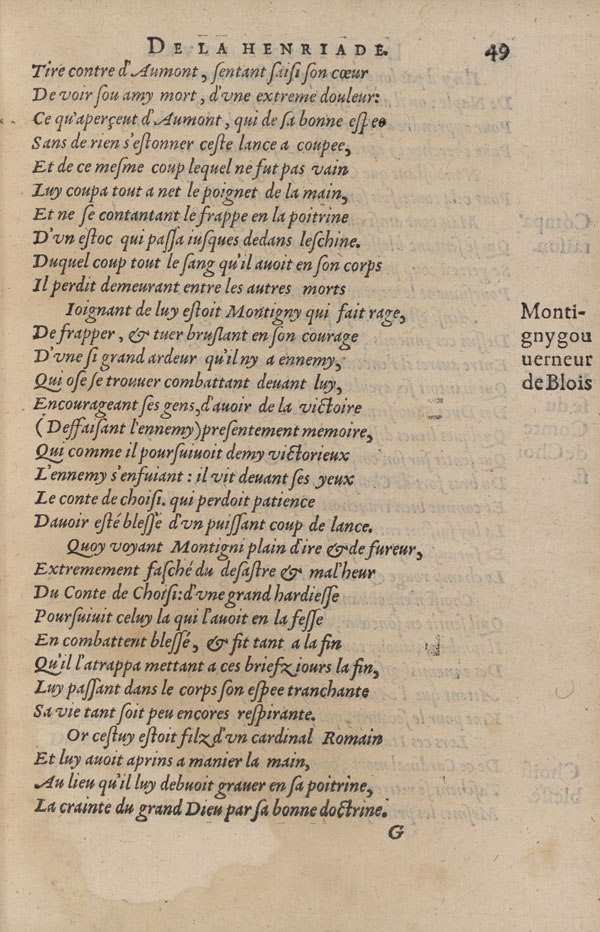 DE LA HENRIADE. 49
Tire contre d'Aumont, sentant saisi son cœur
De voir sou amy mort, d'vne extreme douleur:
Ce qu'aperçeut d'Aumont, qui de sa bonne espee
Sans de rien s'estonner ceste lance a coupee,
Et de ce mesme coup lequel ne fut pas vain
Luy coupa tout a net le poignet de la main,
Et ne se contantant le frappe en la poitrine
D'vn estoc qui passa iusques dedans leschine.
Duquel coup tout le sang qu'il auoit en son corps
Il perdit demeurant entre les autres morts
Ioignant de luy estoit Montigny qui fait rage,
De frapper, & tuer bruslant en son courage
D'vne si grand ardeur qu'il ny a ennemy,
Qui ose se trouuer combattant deuant luy,
Encourageant ses gens, d'auoir de la victoire
(Deffaisant l'ennemy) presentement memoire,
Qui comme il poursuiuoit demy victorieux
L'ennemy s'enfuiant : il vit deuant ses yeux
Le conte de choisi. qui perdoit patience
Dauoir esté blessé d'vn puissant coup de lance.
Quoy voyant Montigni plain d'ire & de fureur,
Extremement fasché du desastre & mal'heur
Du Conte de Choisi: d'vne grand hardiesse
Poursuiuit celuy la qui l'auoit en la fesse
En combattent blessé, & fit tant a la fin
Qu'il l'atrappa mettant a ces briefz iours la fin,
Luy passant dans le corps son espee tranchante
Sa vie tant soit peu encores respirante.
Or cestuy estoit filz d'vn cardinal Romain
Et luy auoit aprins a manier la main,
Au lieu qu'il luy debuoit grauer en sa poitrine,
La crainte du grand Dieu par sa bonne doctrine.
G
Monti-
gny gou
uerneur
de Blois